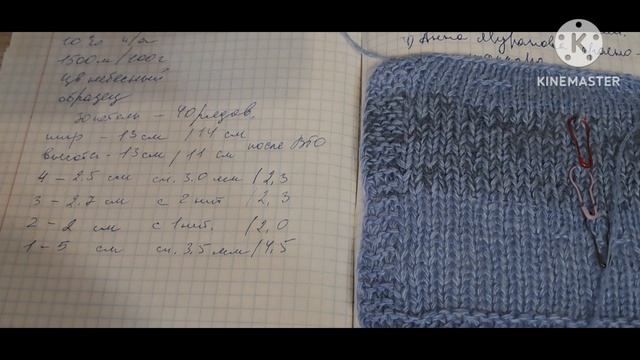 1500м/100г
цв небесный
образец
30 петель – 40 рядов.
шир – 13 см / 14 см
высота – 13 см / 11 см после ВТО
4 – 2.5 см сп. 3.0 мм / 2,3
3 – 2.7 см с 2 нит / 2,3
2 – 2 см с 1 нит. / 2,0
1 – 5 см сп. 3,5 мм / 4,5
1) Анна
KINEMASTER